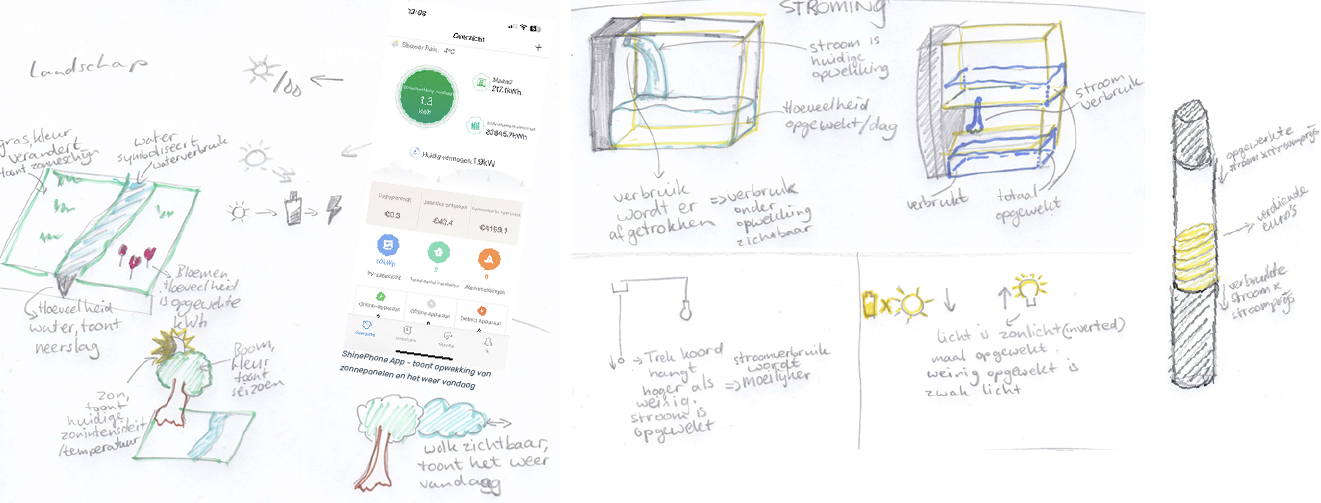 Landschap
gras, kleur
verandert
toont zonneschijn
water
symboliseert
waterverbruik
Bloemen
Hoeveelheid
is opgewekte
kWh
Hoeveelheid
water, toont
neerslag
Boom,
kleur
toont
seizoen
Zon,
toont
huidige
zonintensiteit
/temperatuur
13:06
Overzicht
+
Shower Rain, 4°C
1.3
kWh
Maand
217.1kWh
Huidig vermogen: 1.9kW
€0.3
€43.4
Overzicht
ShinePhone App - toont opwekking van
zonnepanelen en het weer vandaag
wolk zichtbaar,
toont het weer
vandaag
STROMING
stroom is
huidige
opwekking
Hoeveelheid
opgewekt/dag
verbruik
wordt er
afgetrokken
=> verbruik
onder
opwekking
zichtbaar
stroom
verbruik
verbruikt
totaal
opgewekt
Trek koord
hangt
hoger als
weinig
stroom is
opgewekt
=> stroomverbruik
wordt
moeilijker
x
licht is zonlicht (inverted)
maal opgewekt.
weinig opgewekt is
zwak licht
opgewerkte
stroom x stroomprijs
verdiende
euro's
verbruikte
stroom x
stroomprijs